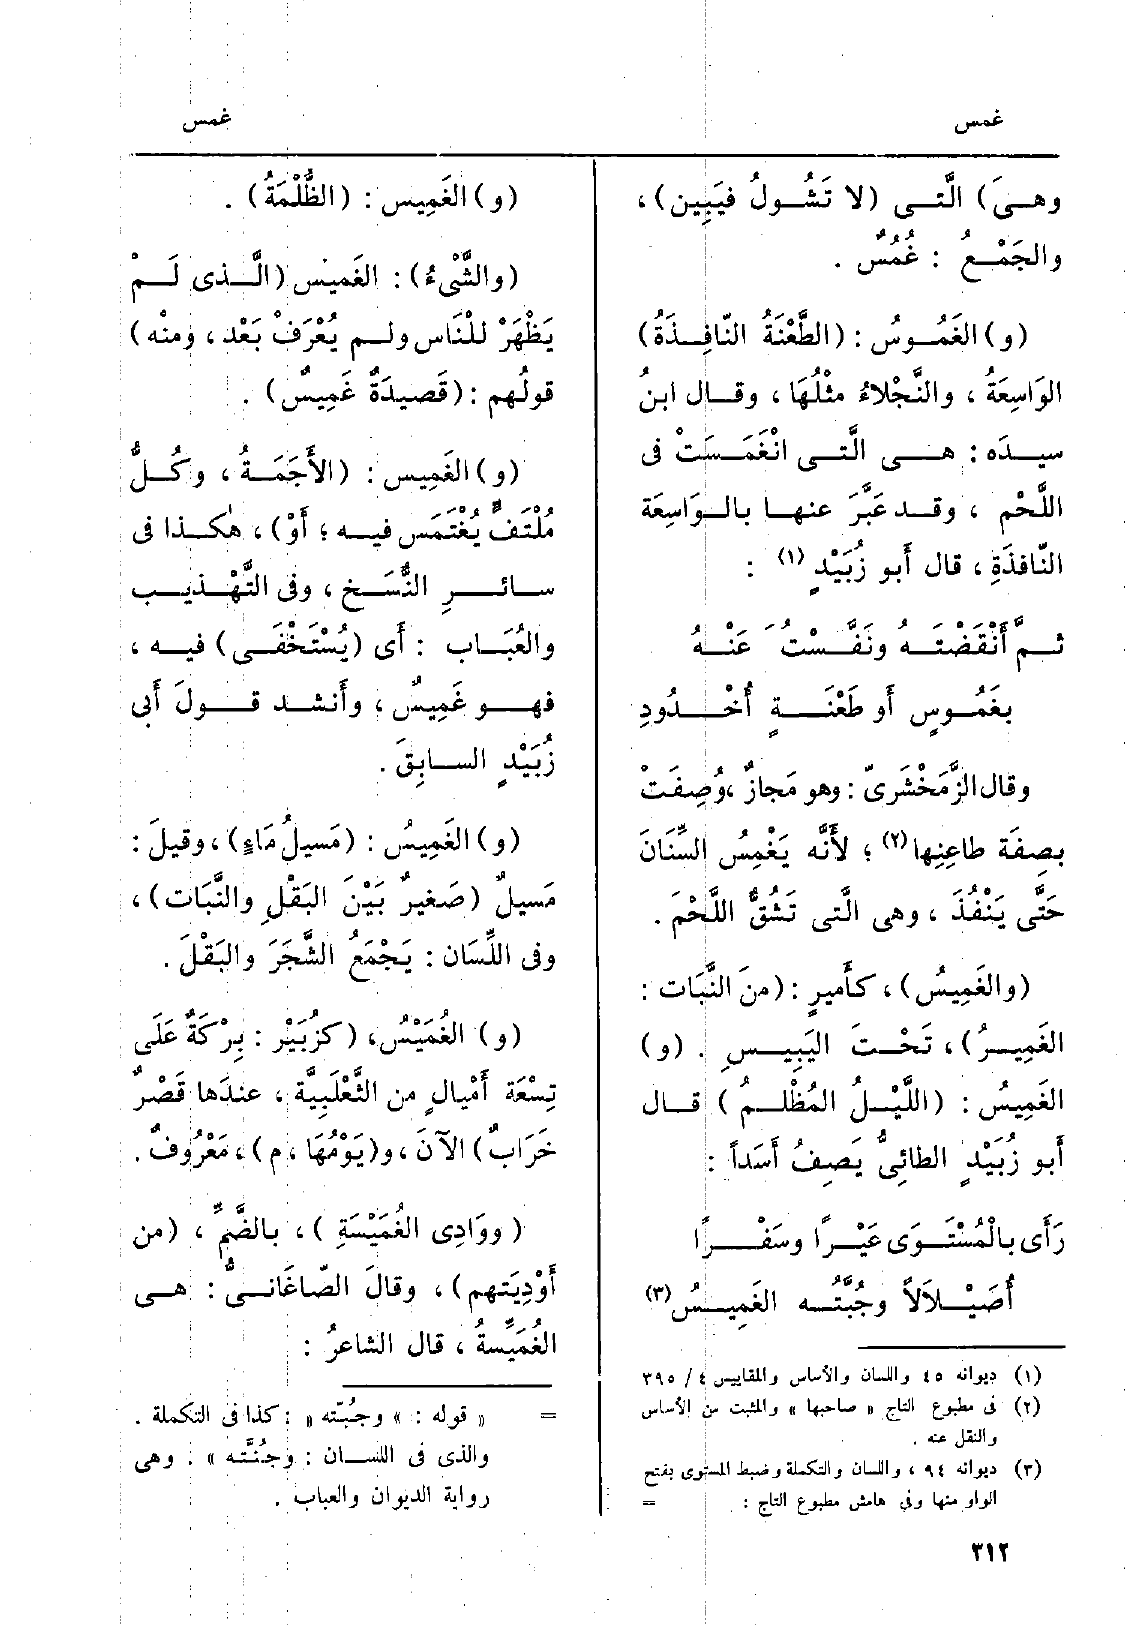 غمس
غمس
وهـىَ) الَّتـى (لا تَشُـولُ فيَبِين) ،
والجَمْـعُ : غُمُسٌ .
(و) الغَمُـوسُ : (الطَّعْنَةُ النّافِـذَةُ)
الوَاسِعَةُ ، والنَّجْلاءُ مثْلُهَا ، وقـال ابنُ
سيـدَه : هـى الَّتـى انْغَمَـسَتْ فى
اللَّحْم ، وقـد عَبَّرَ عنهـا بالـوَاسِعَة
النّافذَةِ ، قال أَبو زُبَيْدٍ (١) :
ثـمّ أَنْقَضْتـه ونَفَّسْـتُ عَنْهُ
بغَمُـوسٍ أَو طَعْنَـةٍ أُخْـدُودِ
وقال الزَّمَخْشَرىّ : وهو مَجازٌ ، وُصِفَتْ
بصِفَة طاعِنِها(٢) ؛ لأَنَّه يَغْمِسُ السِّنَانَ
حَتَّى يَنْفُذَ ، وهى الَّتى تَشُقُّ اللَّحْمَ .
(والغَمِيسُ) ، كأَميرٍ : (منَ النَّبَات :
الغَمِيـرُ) ، تَحْـتَ اليَبِيـسِ . (و)
الغَمِيسُ : (اللَّيْـلُ المُظْلـمُ) قـال
أَبو زُبَيْدٍ الطائىُّ يَصِفُ أَسَداً :
رَأَى بالْمُسْتَـوَى عَيْـرًا وسَفْـرًا
أُصَيْـلاَلاً وجُبَّتُـه الغَمِيـسُ(٣)
(١) ديوانه ٤٥ واللسان والأساس والمقاييس ٤ / ٣٩٥
(٢) فى مطبوع التاج « صاحبها » والمثبت من الأساس
والنقل عنه .
(٣) ديوانه ٩٤ ، واللسان والتكملة وضبط المستوى بفتح
الواو منها وفى هامش مطبوع التاج : =
(و) الغَمِيس : (الظُّلْمَةُ) .
(والشَّىْءُ) : الغَميْس (الَّـذى لَـمْ
يَظْهَرْ للنَّاس ولـم يُعْرَفْ بَعْد ، ومنْه)
قولُهم : (قَصيدَةٌ غَمِيسٌ) .
(و) الغَمِيس : (الأَجَمَـةُ ، وكُـلُّ
مُلْتَفٌّ يُغْتَمَس فيـه ؛ أَوْ) ، هٰكـذا فى
سـائـرِ النُّسَـخ ، وفى التَّهْـذيـب
والعُبَـاب : أَى (يُسْتَخْفَـى) فيـه ،
فهـو غَمِيسٌ ، وأَنشـد قـولَ أَبى
زُبَيْدٍ السـابِقَ .
(و) الغَمِيسُ : (مَسِيلُ مَاءٍ) ، وقيلَ :
مَسيلٌ (صَغيرٌ بَيْنَ البَقْلِ والنَّبَات) ،
وفى اللِّسَان : يَجْمَعُ الشَّجَرَ والبَقْلَ .
(و) الغُمَيْسُ ، (كزُبَيْر : بِرْكَةٌ عَلَى
تِسْعَة أَمْيالٍ من الثَّعْلَبِيَّة ، عندَها قَصْرٌ
خَرَابٌ) الآنَ ، و(يَوْمُهَا ، م) ، مَعْرُوفٌ .
(ووَادِى الغُمَيْسَةِ) ، بالضَّمِّ ، (من
أَوْدِيَتهم) ، وقالَ الصّاغَانـىُّ : هـى
الغُمَيِّسةُ ، قال الشاعرُ :
= « قوله : » وجُبّته « : كذا فى التكملة .
والذى فى اللسـان : وجُنَّتـه » : وهى
رواية الديوان والعباب .
٣١٢